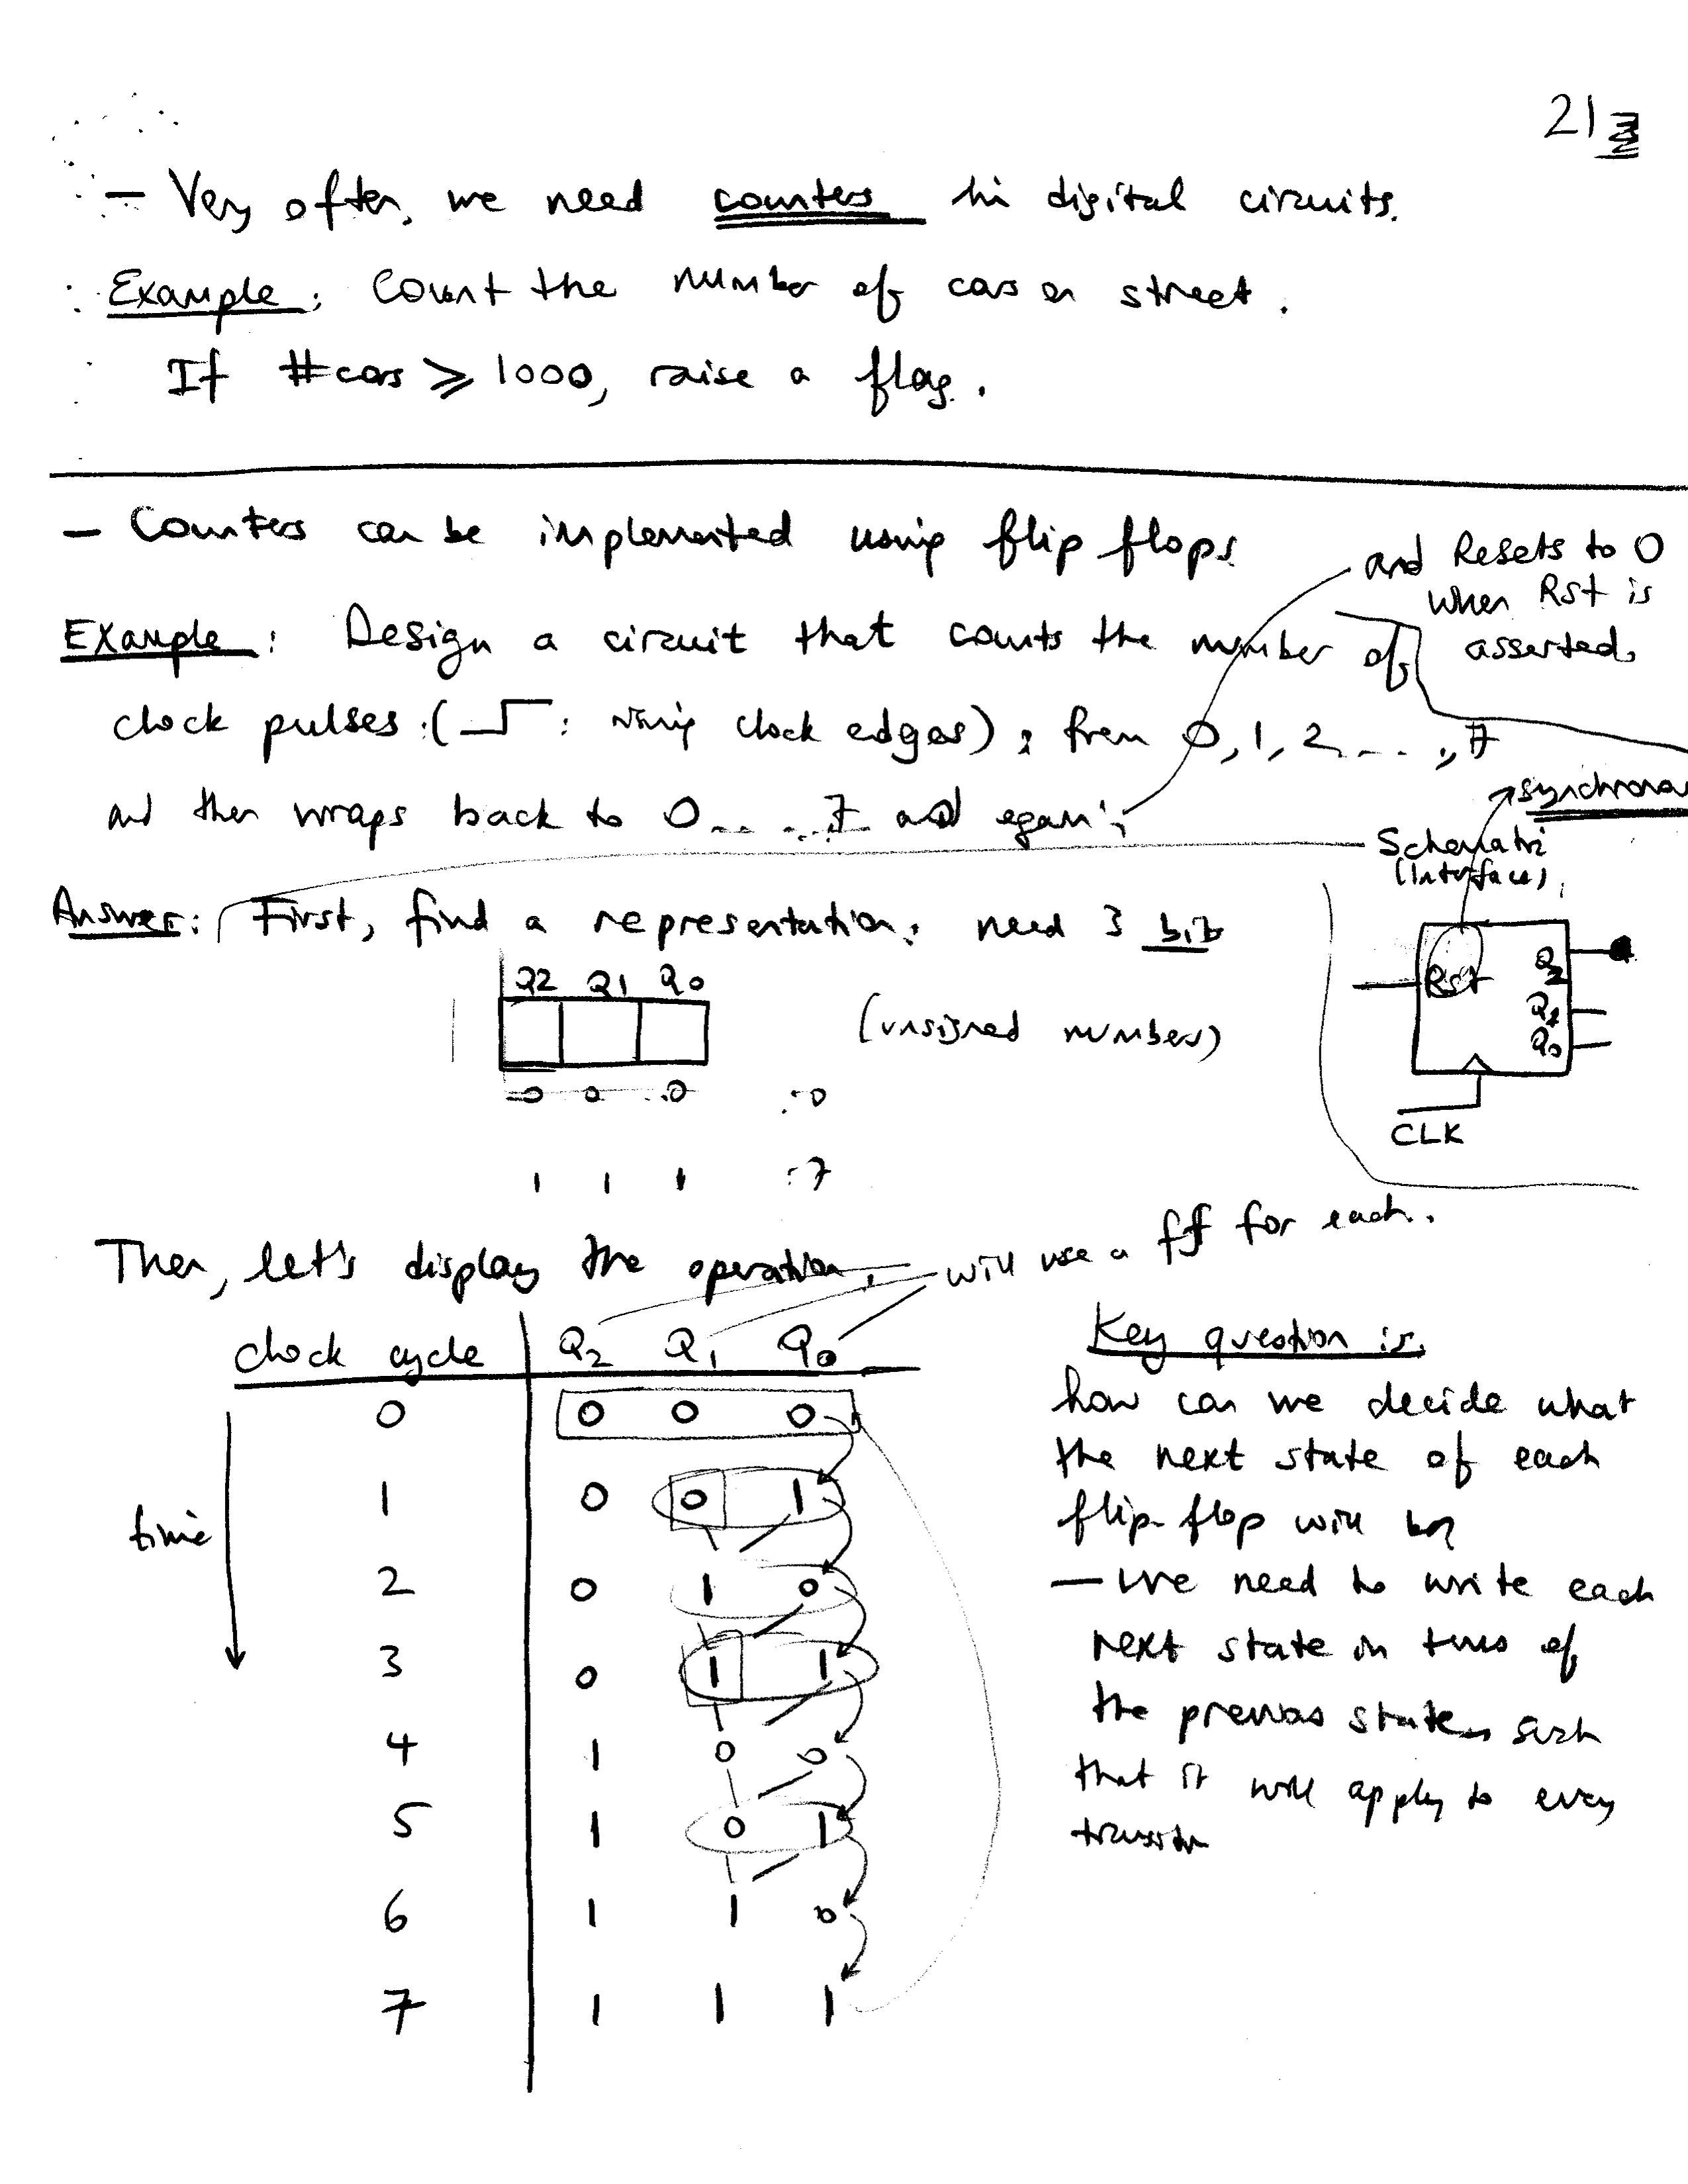 21
- Very often, we need counters in digital circuits.
Example: Count the number of cars on street.
If #cars ≥ 1000, raise a flag.
- Counters can be implemented using flip flops.
and Resets to 0
when Rst is
asserted.
Example: Design a circuit that counts the number of
clock pulses (: rising clock edges), from 0, 1, 2, ...., 7
and then wraps back to 0.....7 and again;
synchronous
Schematic
(Interface).
Answer: First, find a representation. need 3 bits
Q2 Q1 Q0
(unsigned numbers)
0 0 0 : 0
1 1 1 : 7
Rst Q2
Q1
Q0
CLK
Then, let's display the operation.
will use a ff for each.
clock cycle Q2 Q1 Q0
0 0 0 0
1 0 0 1
2 0 1 0
3 0 1 1
4 1 0 0
5 1 0 1
6 1 1 0
7 1 1 1
time
Key question is.
how can we decide what
the next state of each
flip-flop will be?
- we need to write each
next state in terms of
the previous state, such
that it will apply to every